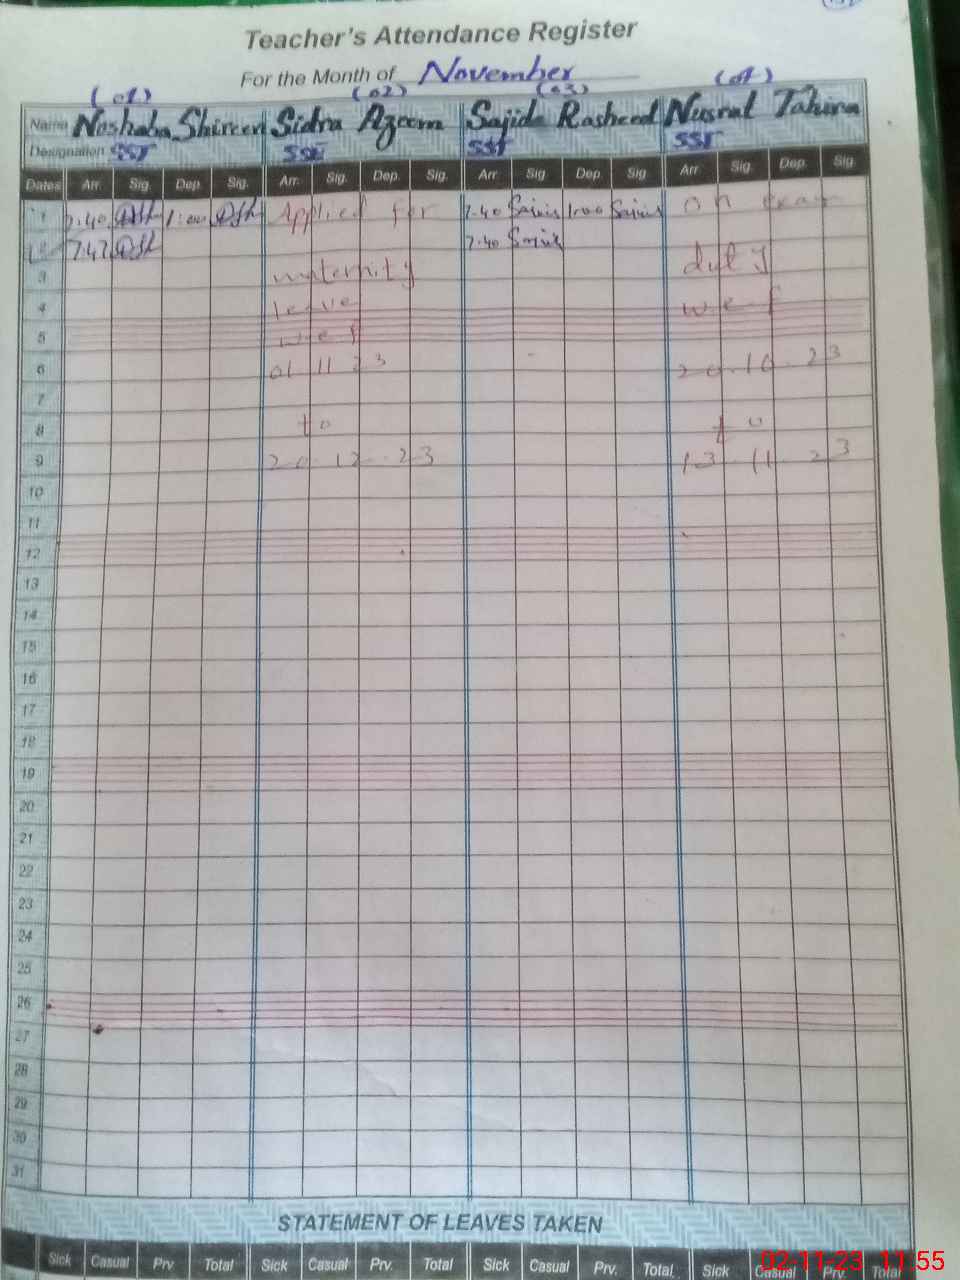 Teacher's Attendance Register
For the Month of November
(01) (02) (03) (04)
Name Noshaba Shireen Sidra Azeem Sajida Rasheed Nusrat Tahira
Designation SST SSE SST SST
Dates Arr. Sig. Dep. Sig. Arr. Sig. Dep. Sig. Arr. Sig. Dep. Sig. Arr. Sig. Dep. Sig.
1 7.40 1:00 Applied for 7.40 1:00 on exam
2 7.47 7.40
3 maternity duty
4 leave w.e.f
5 w.e.f
6 01 11 23 20.10.23
7
8 to to
9 20.12.23 13 11 23
10
11
12
13
14
15
16
17
18
19
20
21
22
23
24
25
26
27
28
29
30
31
STATEMENT OF LEAVES TAKEN
Sick Casual Prv. Total Sick Casual Prv. Total Sick Casual Prv. Total Sick Casual Prv. Total
02-11-23 11:55